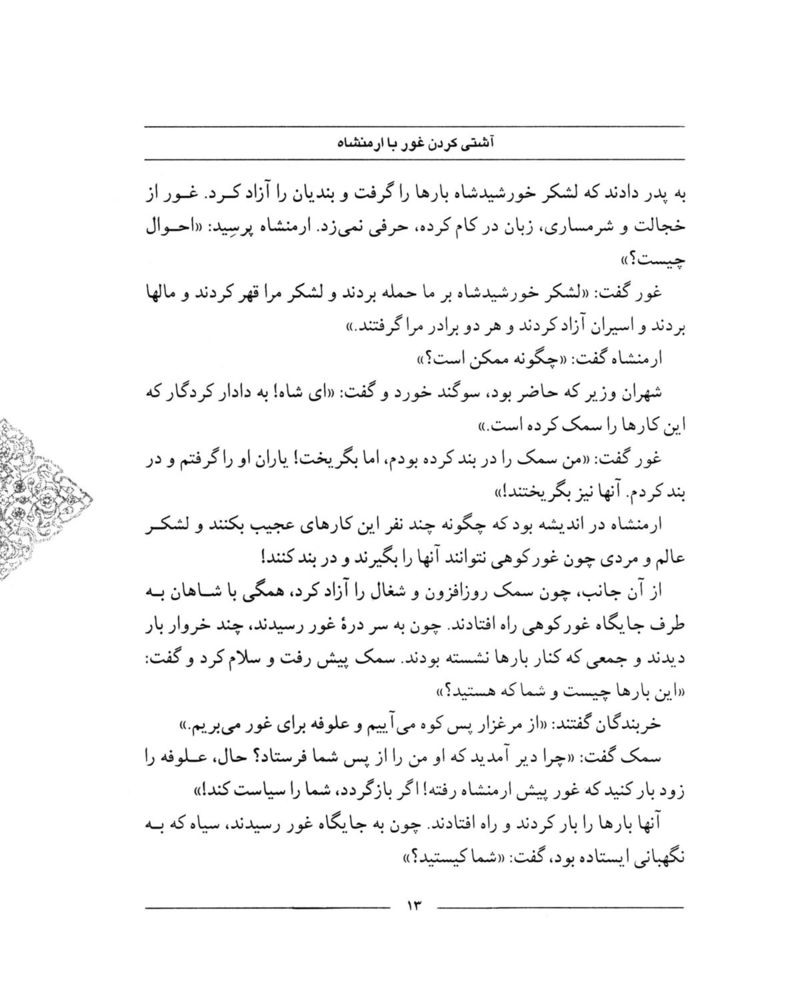 آشتی کردن غور با ارمنشاه
به پدر دادند که لشکر خورشیدشاه بارها را گرفت و بندیان را آزاد کرد. غور از
خجالت و شرمساری، زبان در کام کرده، حرفی نمی‌زد. ارمنشاه پرسِید: «احوال
چیست؟»
غور گفت: «لشکر خورشیدشاه بر ما حمله بردند و لشکر مرا قهر کردند و مالها
بردند و اسیران آزاد کردند و هر دو برادر مرا گرفتند.»
ارمنشاه گفت: «چگونه ممکن است؟»
شهران وزیر که حاضر بود، سوگند خورد و گفت: «ای شاه! به دادار کردگار که
این کارها را سمک کرده است.»
غور گفت: «من سمک را در بند کرده بودم، اما بگریخت! یاران او را گرفتم و در
بند کردم. آنها نیز بگریختند!»
ارمنشاه در اندیشه بود که چگونه چند نفر این کارهای عجیب بکنند و لشکر
عالم و مردی چون غورکوهی نتوانند آنها را بگیرند و در بند کنند!
از آن جانب، چون سمک روزافزون و شغال را آزاد کرد، همگی با شاهان به
طرف جایگاه غورکوهی راه افتادند. چون به سر درهٔ غور رسیدند، چند خروار بار
دیدند و جمعی که کنار بارها نشسته بودند. سمک پیش رفت و سلام کرد و گفت:
«این بارها چیست و شما که هستید؟»
خربندگان گفتند: «از مرغزار پس کوه می‌آییم و علوفه برای غور می‌بریم.»
سمک گفت: «چرا دیر آمدید که او من را از پس شما فرستاد؟ حال، علوفه را
زود بار کنید که غور پیش ارمنشاه رفته! اگر بازگردد، شما را سیاست کند!»
آنها بارها را بار کردند و راه افتادند. چون به جایگاه غور رسیدند، سیاه که به
نگهبانی ایستاده بود، گفت: «شما کیستید؟»
۱۳